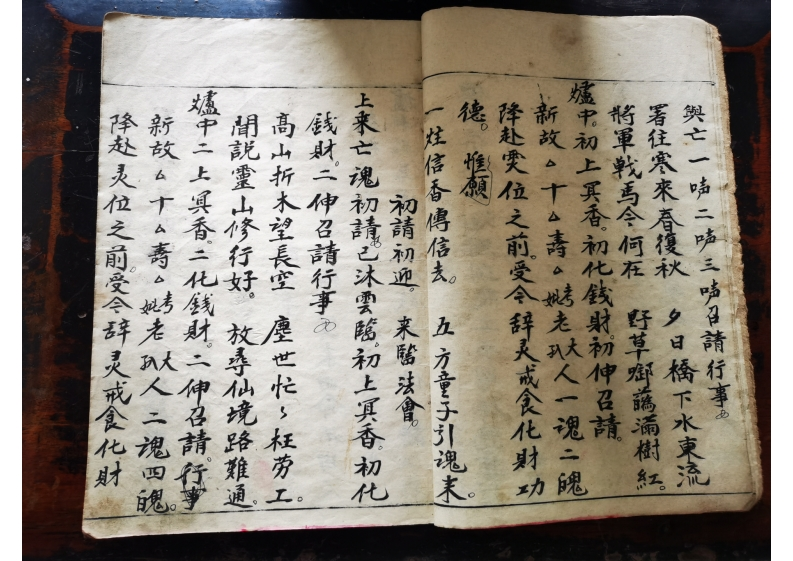 與亡一啨二啨三啨召請行事
署往寒來春復秋 夕日橋下水東流
將軍戰馬今何在 野草啷蕌滿樹紅。
爐中。初上冥香。初化錢財。初伸召請。
新故△十△壽△考妣老大趴人一魂二魄
降赴灵位之前。受今辞灵戒食化財功
德。惟願
一炷信香傳信去。 五方童子引魂来。
初請初迎。 来臨法會。
上来亡魂初請已沐雲臨。初上冥香。初化
錢財。二伸召請行事
高山折木望長空 塵世忙〻枉劳工。
聞說靈山修行好。 放尋仙境路難通。
爐中二上冥香。二化錢財。二伸召請。行事
新故△十△壽△考妣老大趴人二魂四魄。
降赴灵位之前。受今辞灵戒食化財